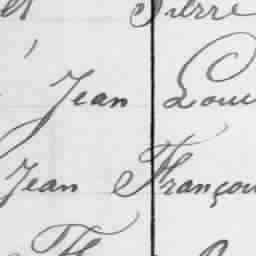 Pierre
Jean Loui
Jean Françoi